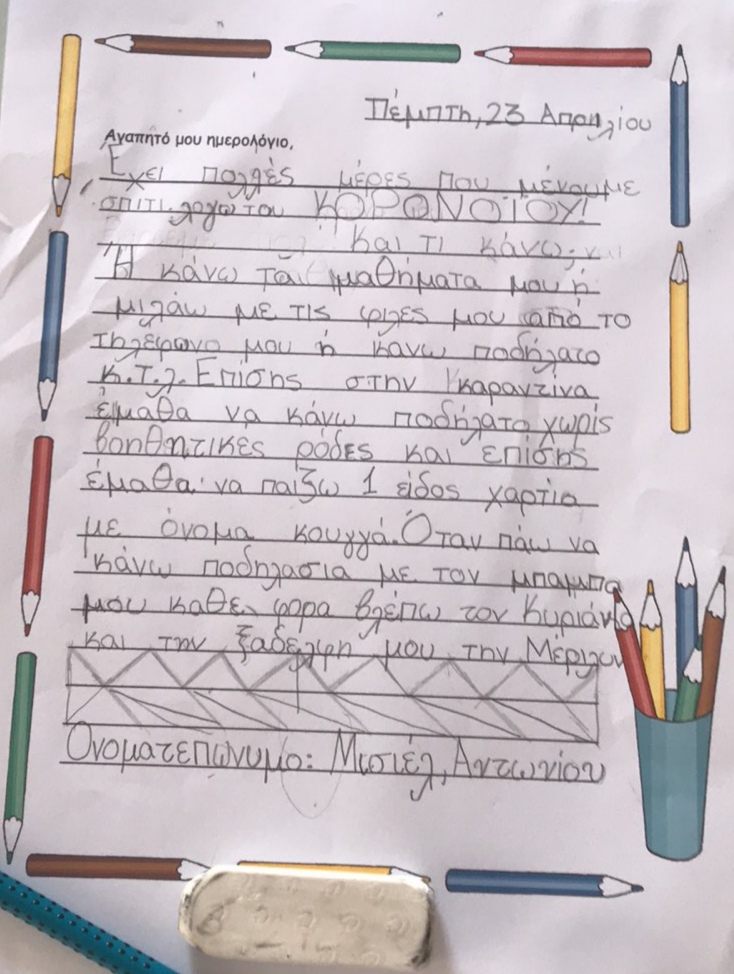 Πέμπτη, 23 Απριλίου
Αγαπητό μου ημερολόγιο,
Έχει πολλές μέρες που μένουμε
σπιτι λόγω του ΚΟΡΟΝΟΪΟΥ!
Και τι κάνω;
Ή κάνω τα μαθήματα μου ή
μιλάω με τις φιλες μου από το
τηλέφωνο μου ή κανω ποδήλατο
κ.τ.λ. Επίσης στην καραντίνα
έμαθα να κάνω ποδήλατο χωρίς
βοηθητικες ρόδες και επίσης
έμαθα να παίζω 1 είδος χαρτία
με όνομα κουγγά. Όταν πάω να
κάνω ποδηλασια με τον μπαμπα
μου καθε φορα βλέπω τον Κυριάκο
και την ξαδέλφη μου την Μέριλον
Ονοματεπώνυμο: Μισιέλ, Αντωνίου